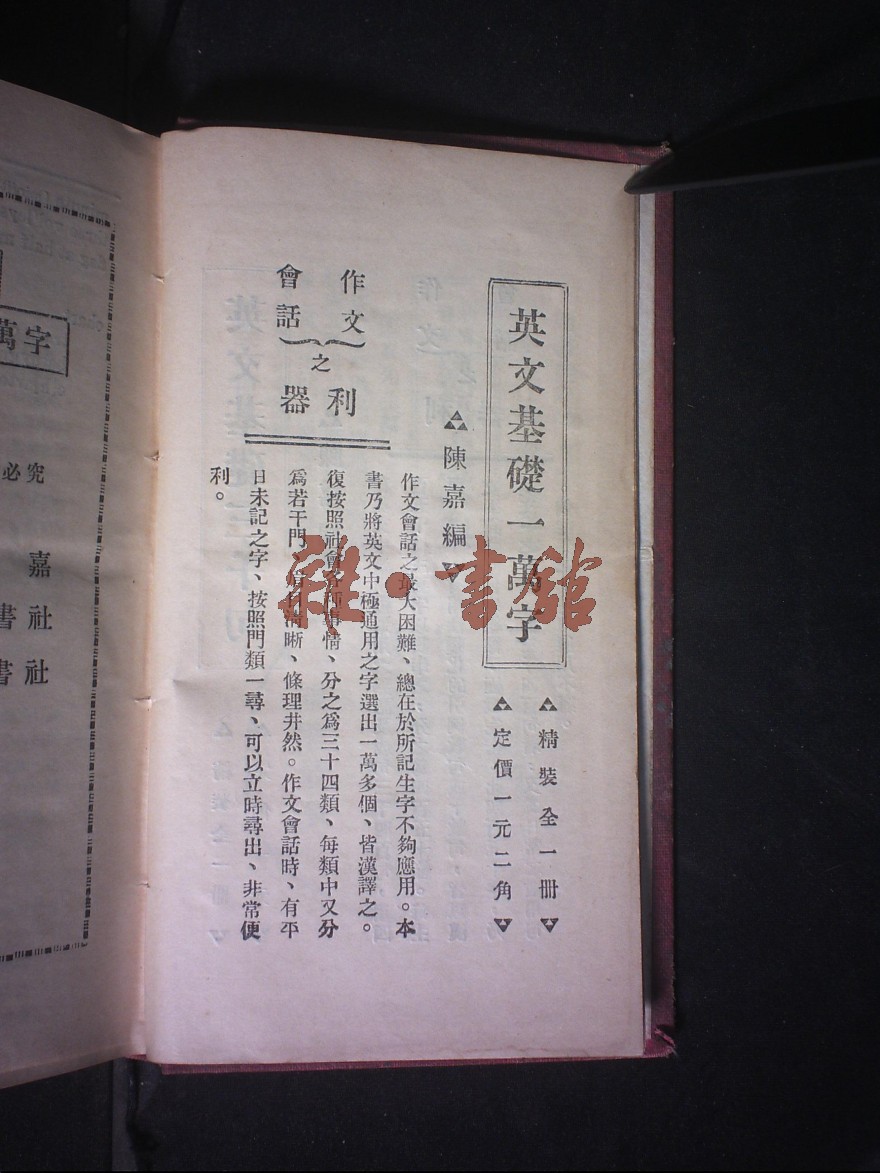 英文基礎一萬字
精裝全一冊
定價一元二角
陳嘉編
作文
會話
之
利器
作文會話之最大困難、總在於所記生字不夠應用。本
書乃將英文中極通用之字選出一萬多個、皆漢譯之。
復按照社會各種事情、分之爲三十四類、每類中又分
爲若干門、清晰、條理井然。作文會話時、有平
日未記之字、按照門類一尋、可以立時尋出、非常便
利。
雅·書館
萬字
必究
嘉
書社
書社